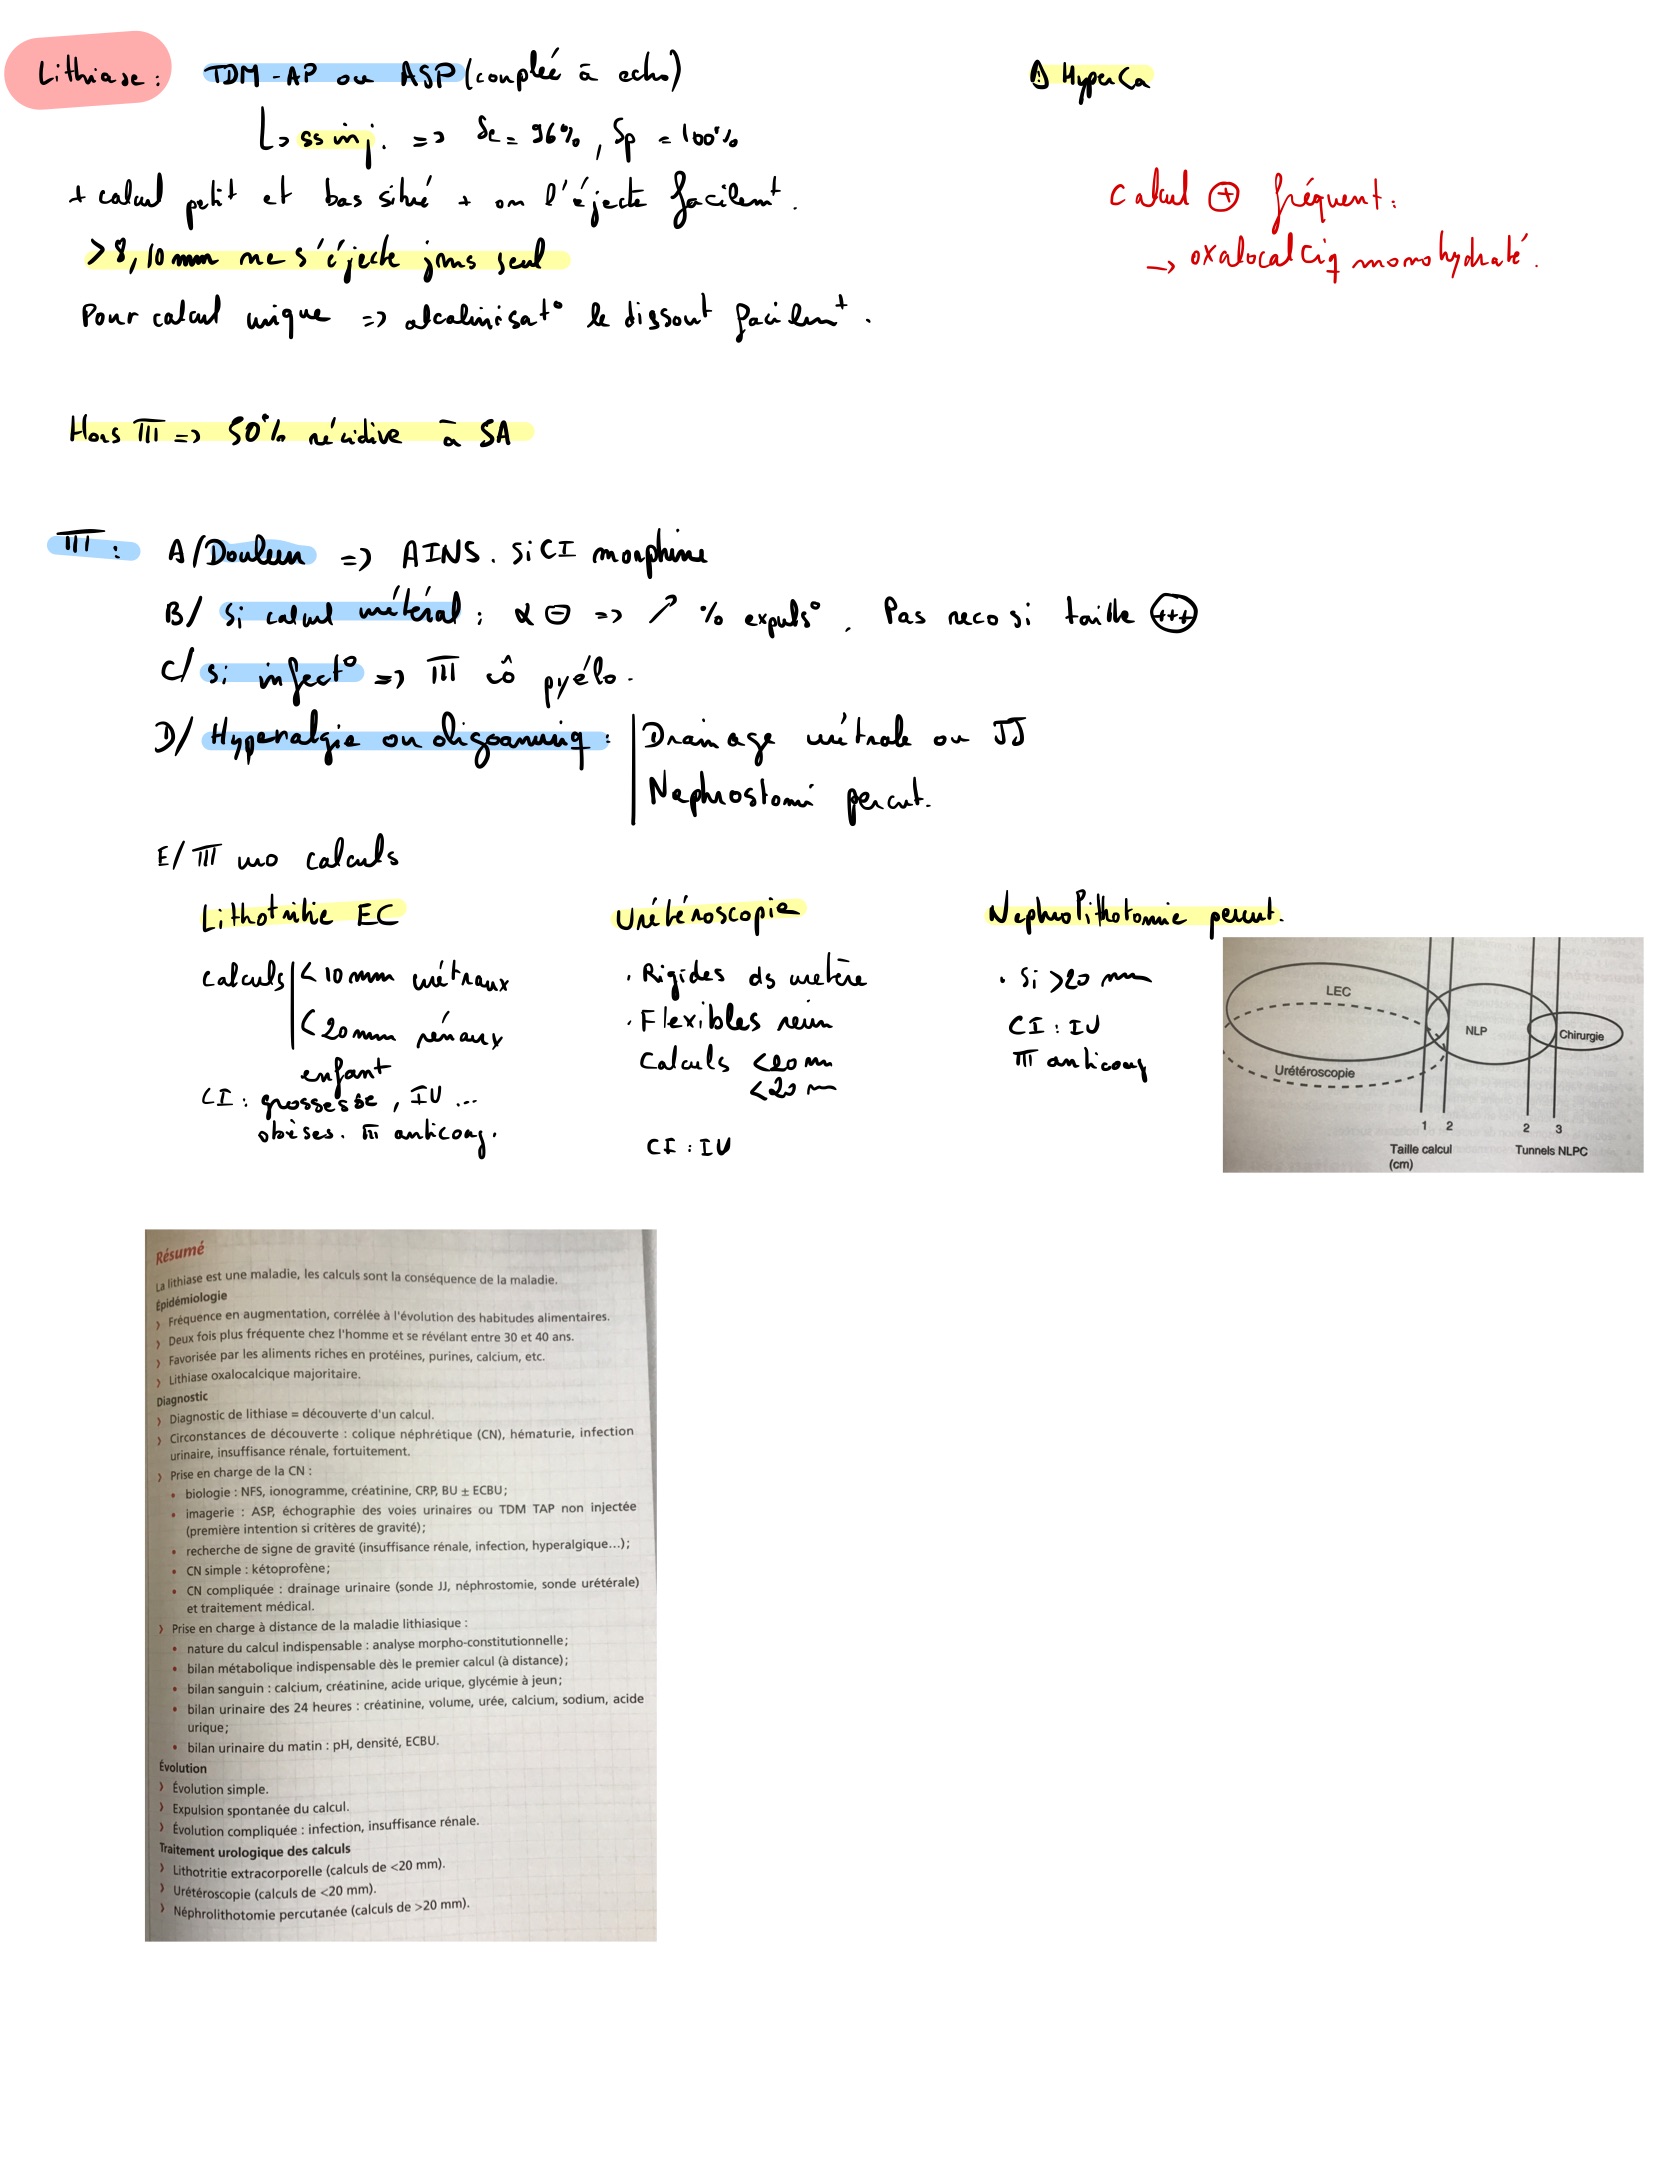 Lithiase : TDM-AP ou ASP (couplée à echo)
⚠ HyperCa
↳ ss inj. => Se = 96%, Sp = 100%
+ calcul petit et bas situé + on l'éjecte facilemt.
> 8, 10 mm ne s'éjecte jms seul
Pour calcul urique => alcalinisat° le dissout facilemt.
calcul ⊕ fréquent :
→ oxalocalciq monohydraté.
Hors TTT => 50% récidive à 5A
TTT : A/ Douleur => AINS. Si CI morphine
B/ Si calcul urétéral : α ⊖ => ↗ % expuls°. Pas reco si taille +++
C/ Si infect° => TTT cô pyélo.
D/ Hyperalgie ou oligoanuriq : Drainage urétrale ou JJ
Nephrostomi percut.
E/ TTT uro calculs
Lithotritie EC
calculs < 10 mm urétraux
< 20 mm rénaux
enfant
CI : grossesse, IU ...
obèses. TTT anticoag.
Urétéroscopie
. Rigides ds uretère
. Flexibles rein
Calculs <20 mm
<20 m
CI : IU
Nephrolithotomie percut.
. Si >20 mm
CI : IU
TTT anticoag
LEC
NLP
Chirurgie
Urétéroscopie
1 2
2 3
Taille calcul
(cm)
Tunnels NLPC
Résumé
La lithiase est une maladie, les calculs sont la conséquence de la maladie.
Épidémiologie
› Fréquence en augmentation, corrélée à l'évolution des habitudes alimentaires.
› Deux fois plus fréquente chez l'homme et se révélant entre 30 et 40 ans.
› Favorisée par les aliments riches en protéines, purines, calcium, etc.
› Lithiase oxalocalcique majoritaire.
Diagnostic
› Diagnostic de lithiase = découverte d'un calcul.
› Circonstances de découverte : colique néphrétique (CN), hématurie, infection
urinaire, insuffisance rénale, fortuitement.
› Prise en charge de la CN :
• biologie : NFS, ionogramme, créatinine, CRP, BU ± ECBU;
• imagerie : ASP, échographie des voies urinaires ou TDM TAP non injectée
(première intention si critères de gravité);
• recherche de signe de gravité (insuffisance rénale, infection, hyperalgique...);
• CN simple : kétoprofène;
• CN compliquée : drainage urinaire (sonde JJ, néphrostomie, sonde urétérale)
et traitement médical.
› Prise en charge à distance de la maladie lithiasique :
• nature du calcul indispensable : analyse morpho-constitutionnelle;
• bilan métabolique indispensable dès le premier calcul (à distance);
• bilan sanguin : calcium, créatinine, acide urique, glycémie à jeun;
• bilan urinaire des 24 heures : créatinine, volume, urée, calcium, sodium, acide
urique;
• bilan urinaire du matin : pH, densité, ECBU.
Évolution
› Évolution simple.
› Expulsion spontanée du calcul.
› Évolution compliquée : infection, insuffisance rénale.
Traitement urologique des calculs
› Lithotritie extracorporelle (calculs de <20 mm).
› Urétéroscopie (calculs de <20 mm).
› Néphrolithotomie percutanée (calculs de >20 mm).